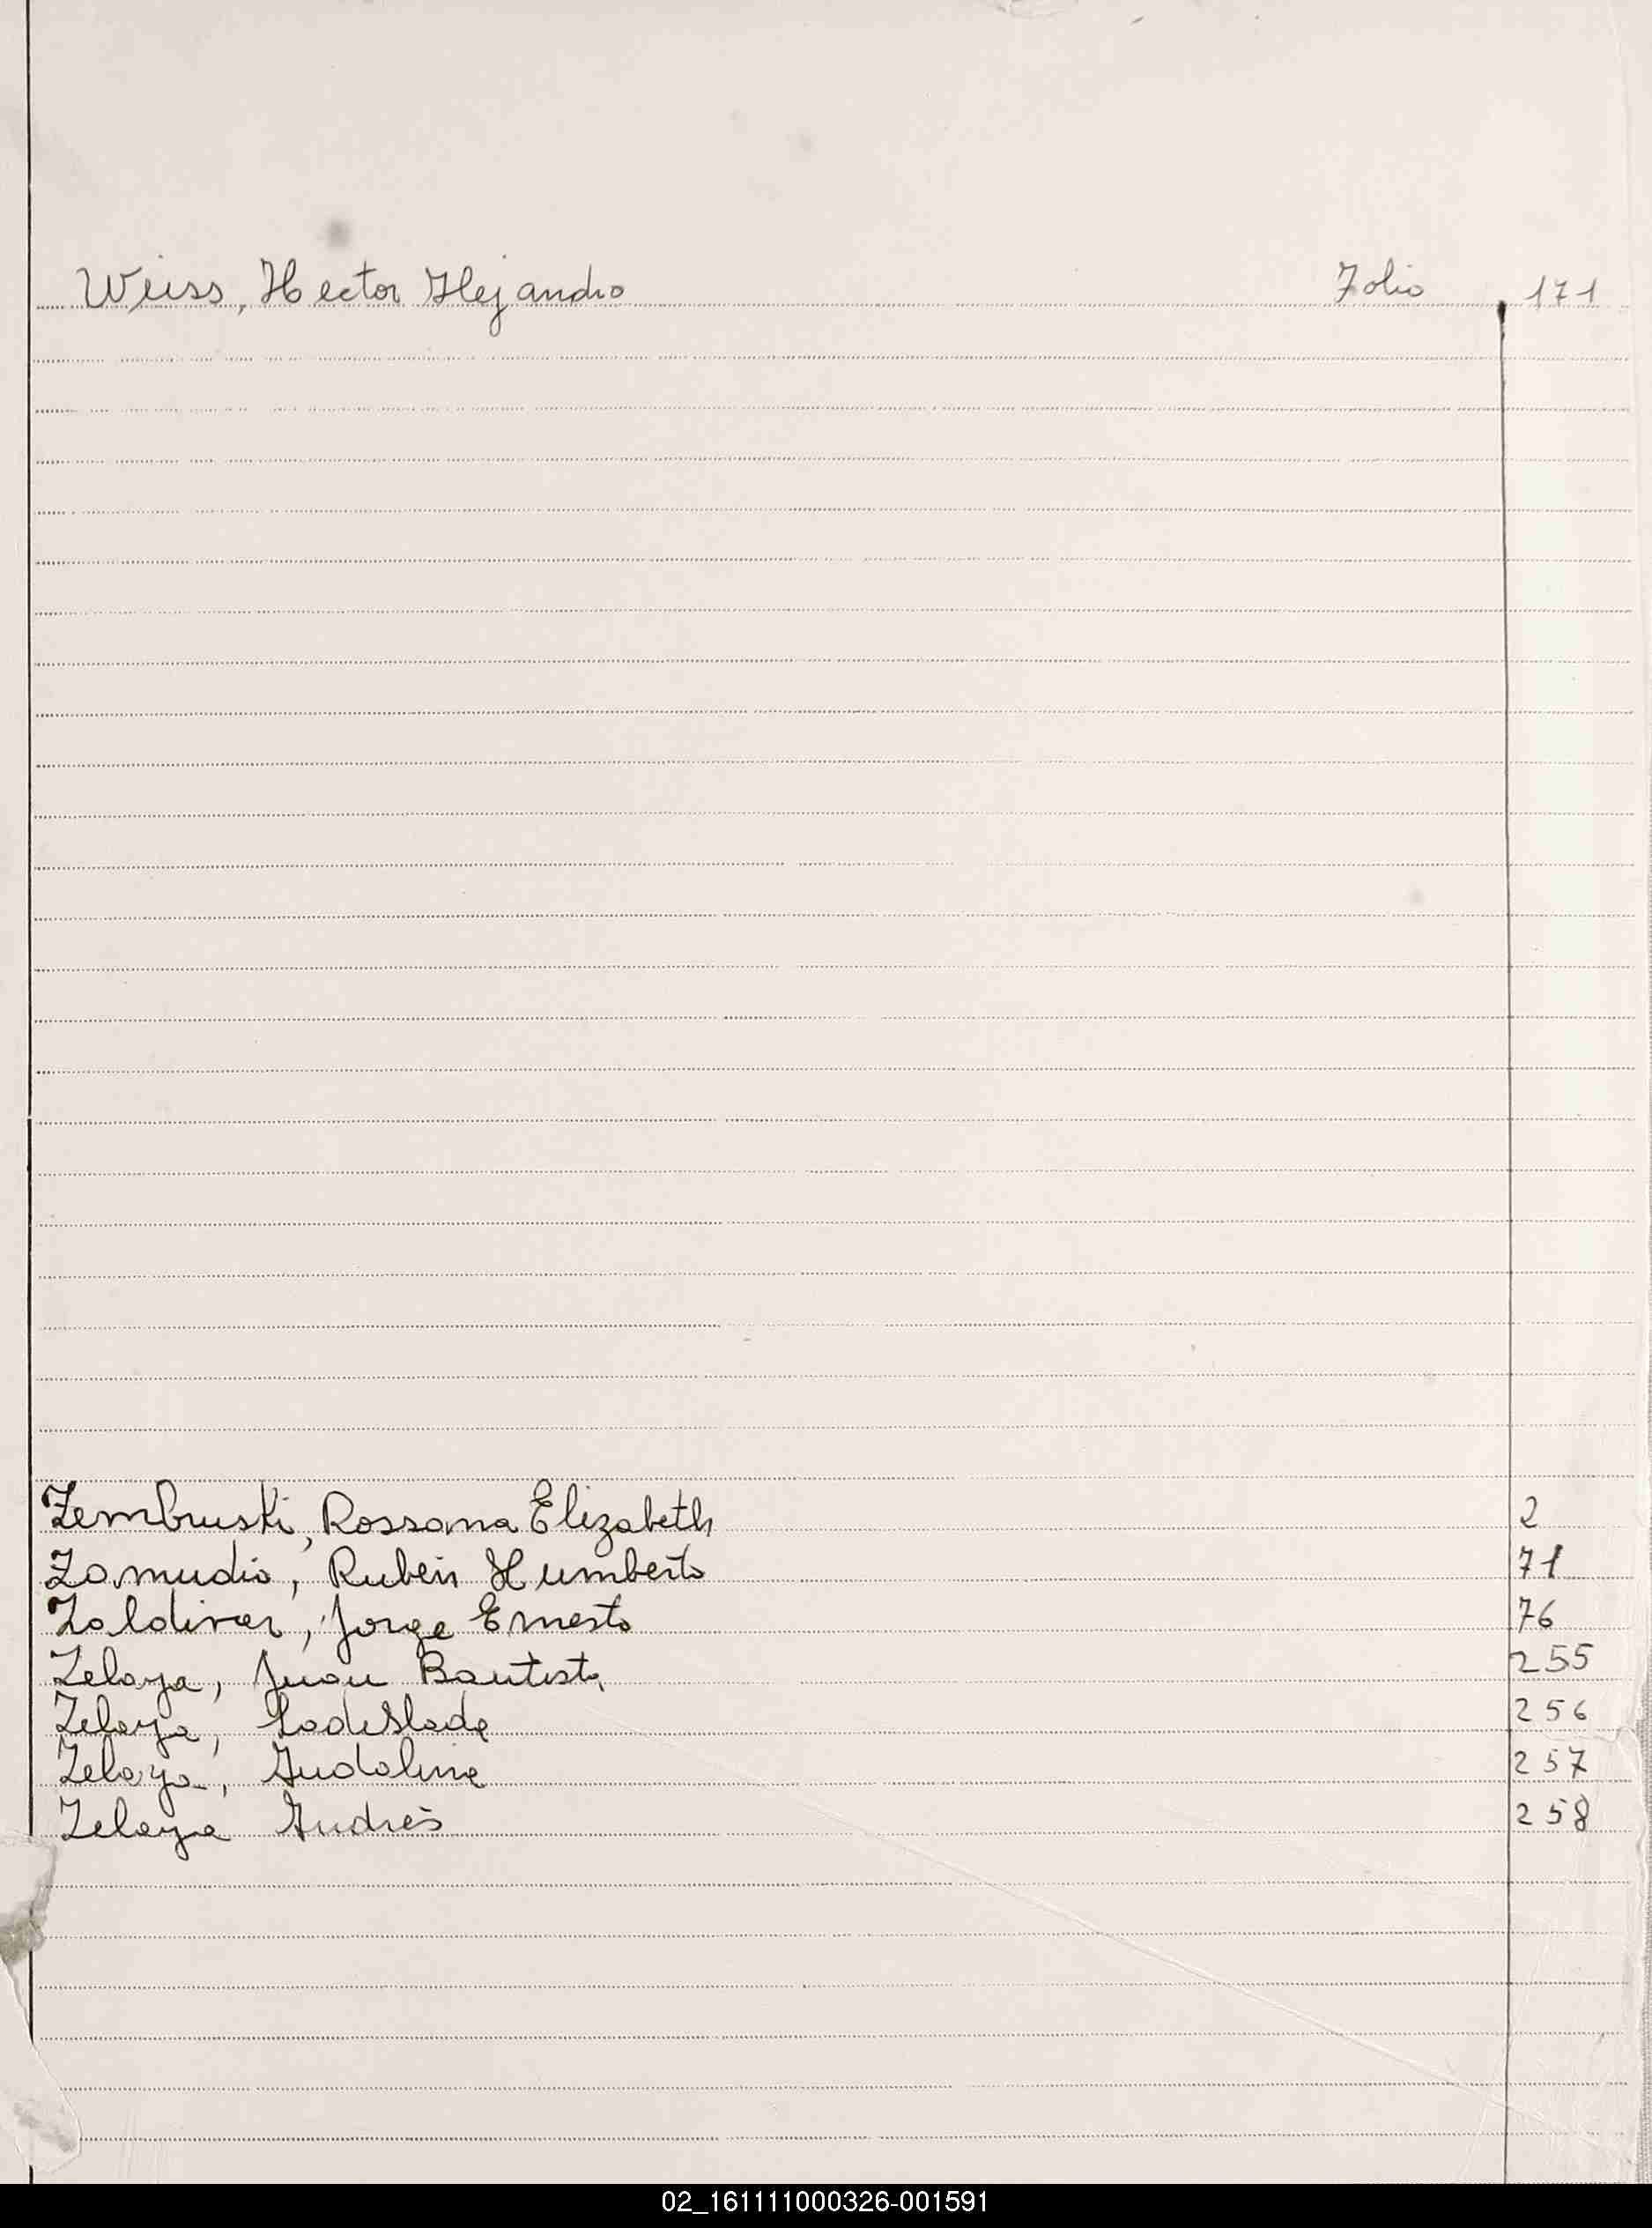 Weiss, Hector Alejandro Folio 171
Zembruski, Rossana Elizabeth 2
Zamudio, Rubén Humberto 71
Zaldivar, Jorge Ernesto 76
Zelaya, Juan Bautista 255
Zelaya, Ladislada 256
Zelaya, Andolina 257
Zelaya Andrés 258
02_161111000326-001591